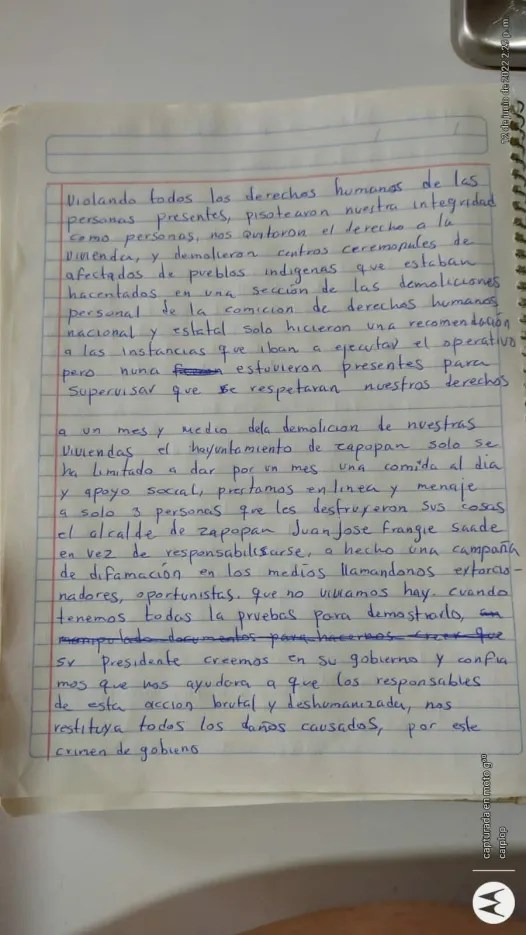 Violando todos los derechos humanos de las
personas presentes, pisotearon nuestra integridad
como personas, nos quitaron el derecho a la
vivienda, y demolieron centros ceremoniales de
afectados de pueblos indigenas que estaban
hacentados en una sección de las demoliciones
personal de la comicion de derechos humanos
nacional y estatal solo hicieron una recomendación
a las instancias que iban a ejecutar el operativo
pero nuna estuvieron presentes para
supervisar que se respetaran nuestros derechos
a un mes y medio dela demolicion de nuestras
viviendas el hayuntamiento de zapopan solo se
ha limitado a dar por un mes una comida al dia
y apoyo social, prestamos en linea y menaje
a solo 3 personas que les destruyeron sus cosas
el alcalde de zapopan Juan Jose Frangie saade
en vez de responsabilisarse, a hecho una campaña
de difamación en los medios llamandonos extorcio-
nadores, oportunistas. que no viviamos hay. cuando
tenemos todas la pruebas para demostrarlo, an
manipulado documentos para hacernos creer que
sr presidente creemos en su gobierno y confia
mos que nos ayudara a que los responsables
de esta accion brutal y deshumanizada, nos
restituya todos los daños causados, por este
crimen de gobieno
12 de junio de 2022 2:29 p. m.
capturada en moto g¹⁰
carplop